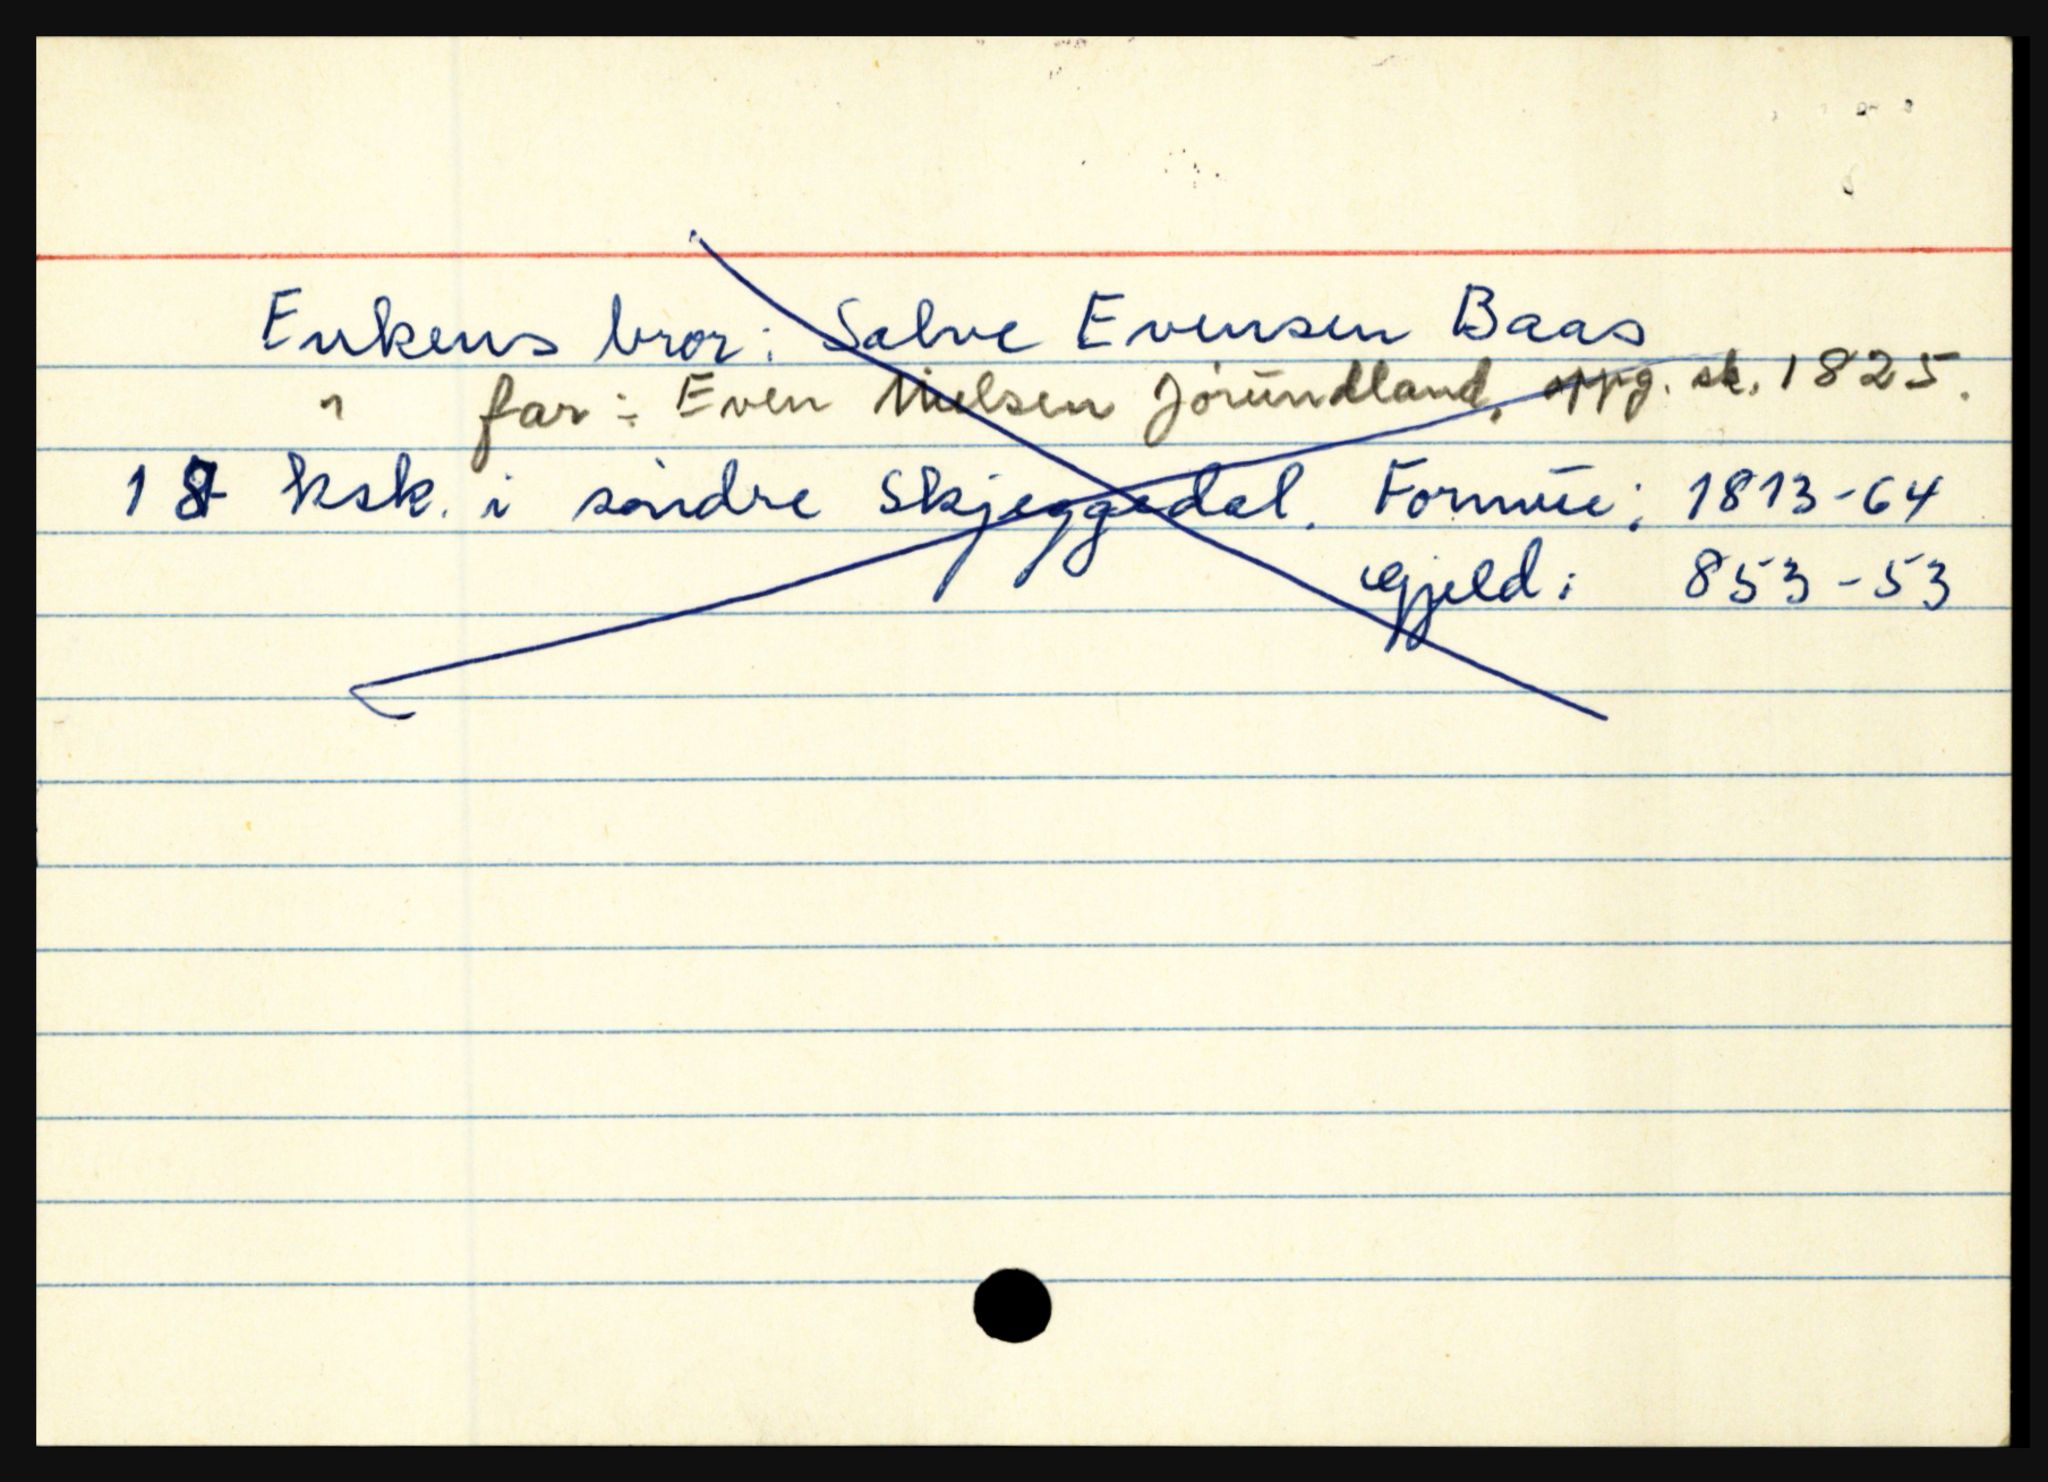 Enkens bror: Salve Evensen Baas
" far: Even Nielsen Jórŭndland, oppg. sk. 1825.
18 ksk. i søndre Skjeggedal. Formŭe: 1813-64
Gjeld: 853-53